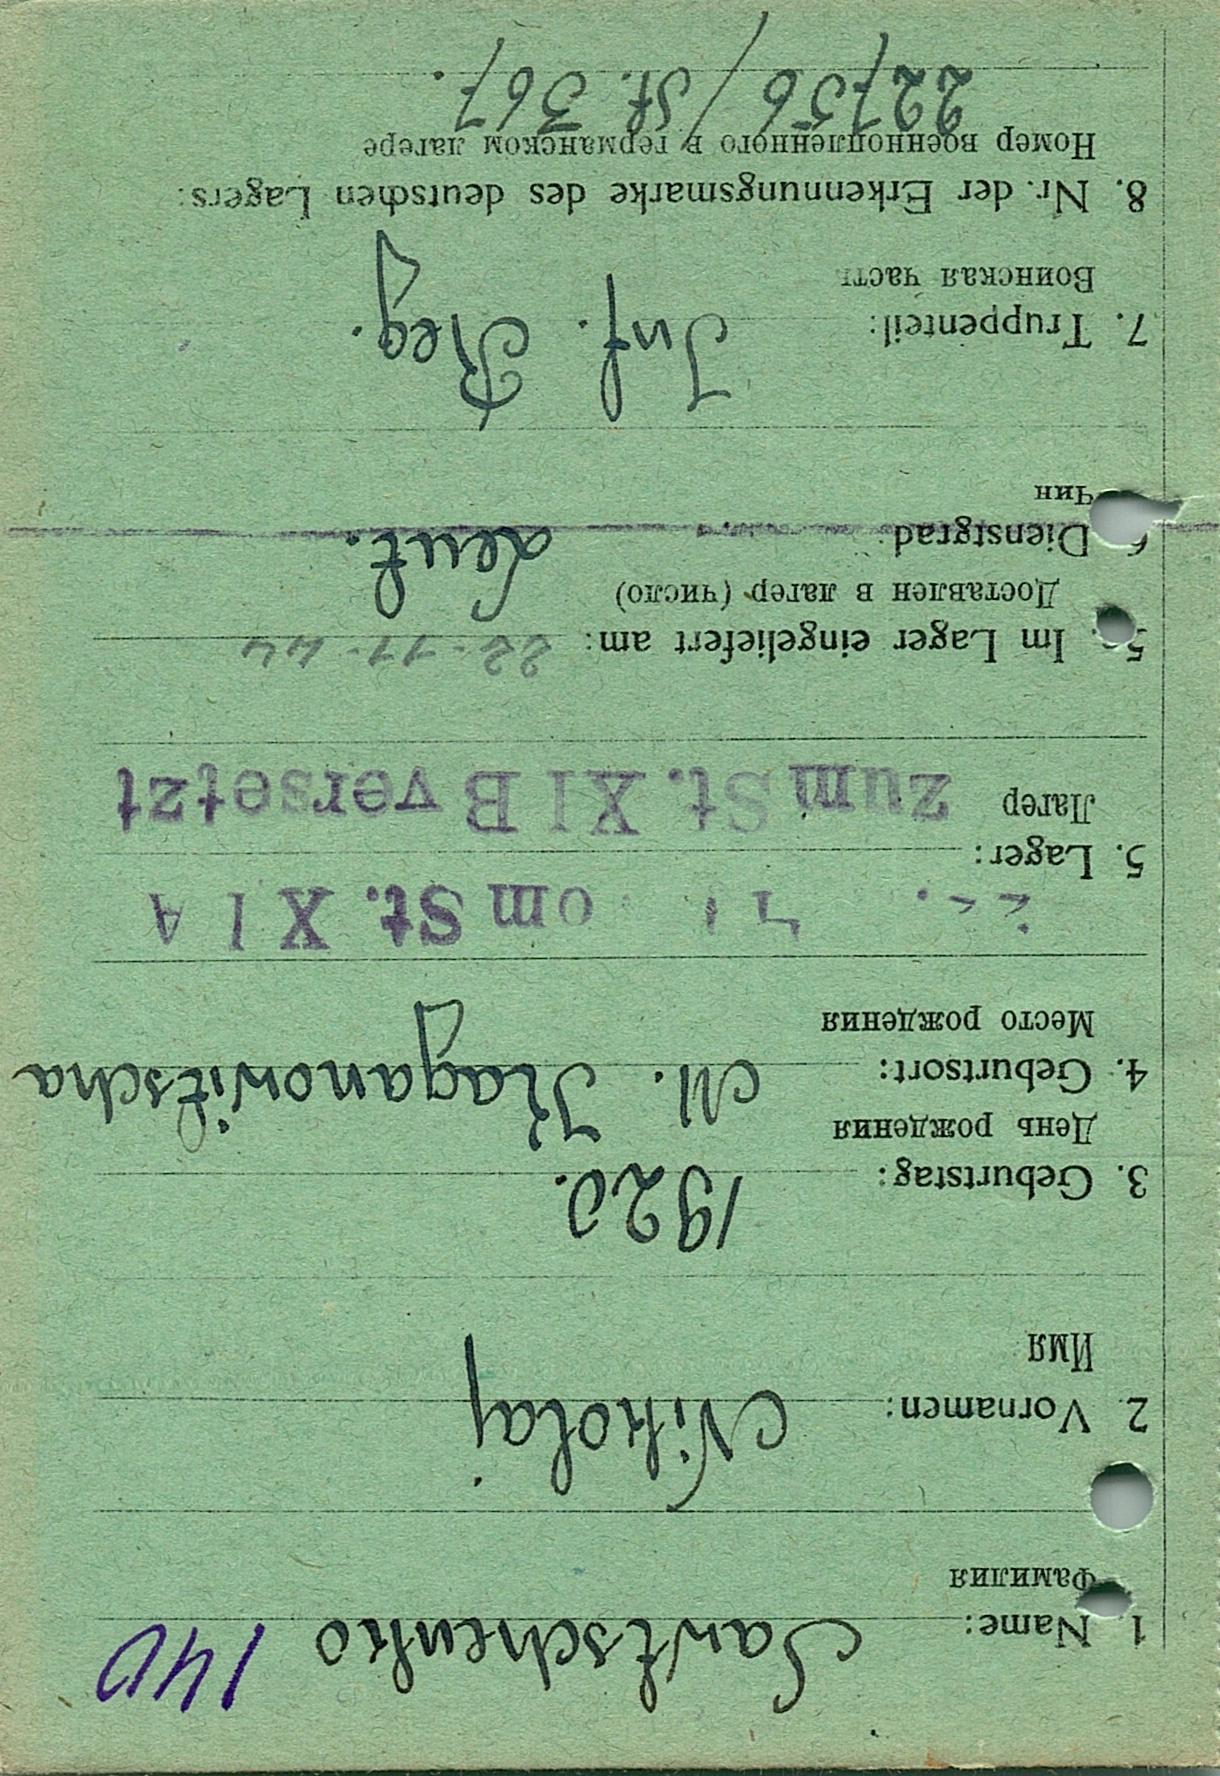 140
1. Name: Sawtschenko
Фамилия
2. Vornamen: Nikolaj
Имя
3. Geburtstag: 1920.
День рождения
4. Geburtsort: M. Kaganowitscha
Место рождения
om St. XI A
5. Lager:
Лагер zum St. XI B versetzt
5a. Im Lager eingeliefert am: 22-11-44
Доставлен в лагер (число)
6. Dienstgrad: Leut.
Чин
7. Truppenteil: Inf. Reg.
Воинская часть
8. Nr. der Erkennungsmarke des deutschen Lagers:
Номер военнопленного в германском лагере
22756/St. 367.